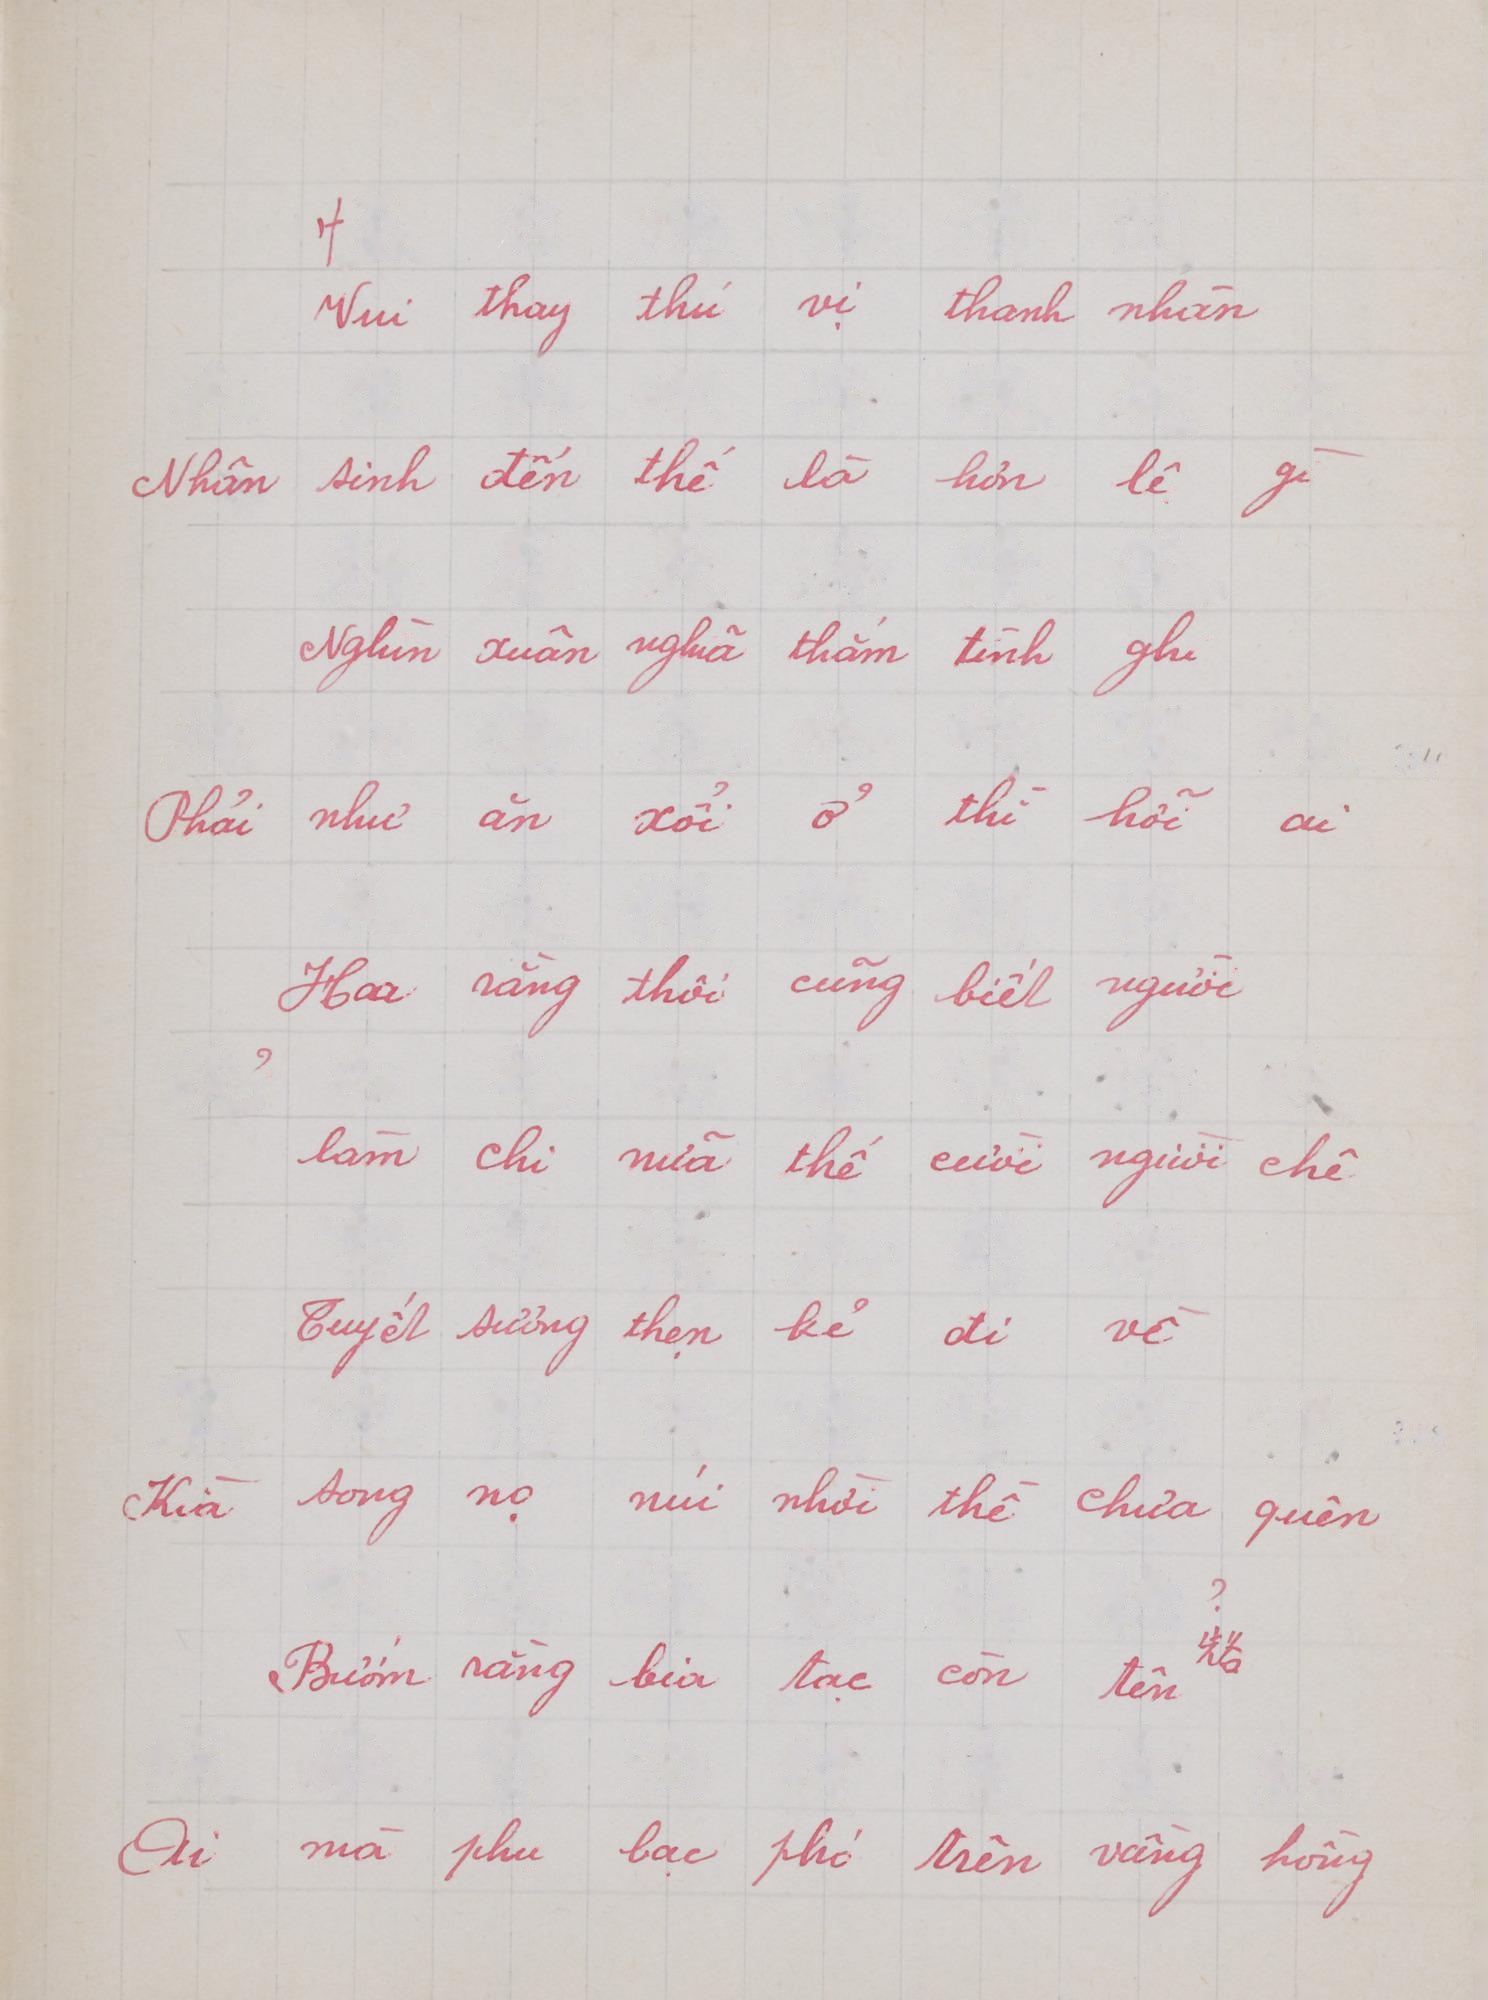 Vui thay thú vị thanh nhàn
Nhân sinh đến thế là hơn lệ gì
Nghìn xuân nghĩa thắm tình ghi
Phải như ăn xổi ở thì hỡi ai
Hoa rằng thôi cũng biết người
?
làm chi nữa thế cười người chê
Tuyết sương thẹn kẻ đi về
Kià song nọ núi nhời thề chưa quên
?
Bướm rằng bia tạc còn tên
Ai mà phu bạc phó trên vầng hồng